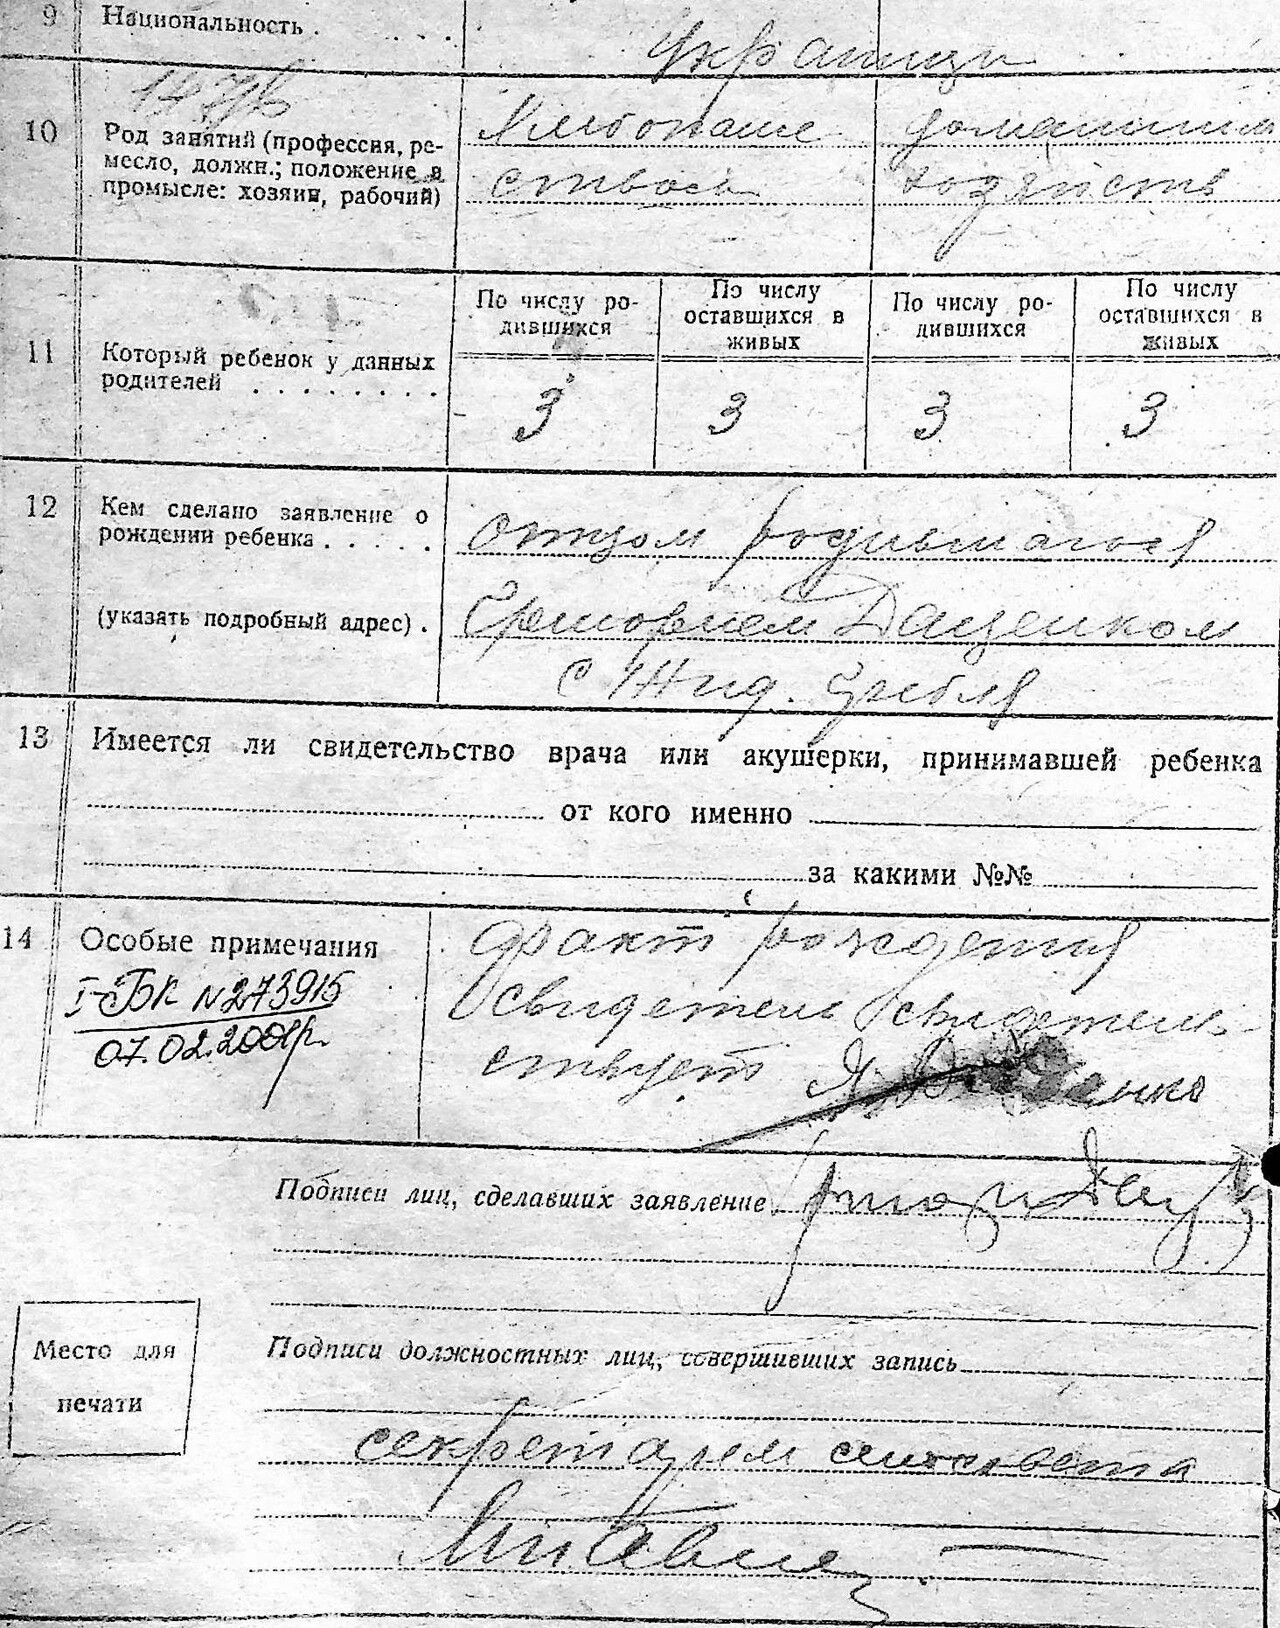 9 Национальность . . . .
Украинцы
10 Род занятий (профессия, ре-
месло, должн.; положение в
промысле: хозяин, рабочий)
Хлебопаше
ством
домашним
хозяйств
По числу ро-
дившихся
По числу
оставшихся в
живых
По числу ро-
дившихся
По числу
оставшихся в
живых
11 Который ребенок у данных
родителей . . . . . . . .
3 3 3 3
12 Кем сделано заявление о
рождении ребенка . . . . .
отцом родившагося
(указать подробный адрес) .
Григорием Даценком
с. Гребля
13 Имеется ли свидетельство врача или акушерки, принимавшей ребенка
от кого именно
за какими №№
14 Особые примечания
I-БК №273915
07.02.2001р.
факт рождения
свидетель свидетель-
ствует
Подписи лиц, сделавших заявление
Место для
печати
Подписи должностных лиц, совершивших запись
секретарем сельсовета